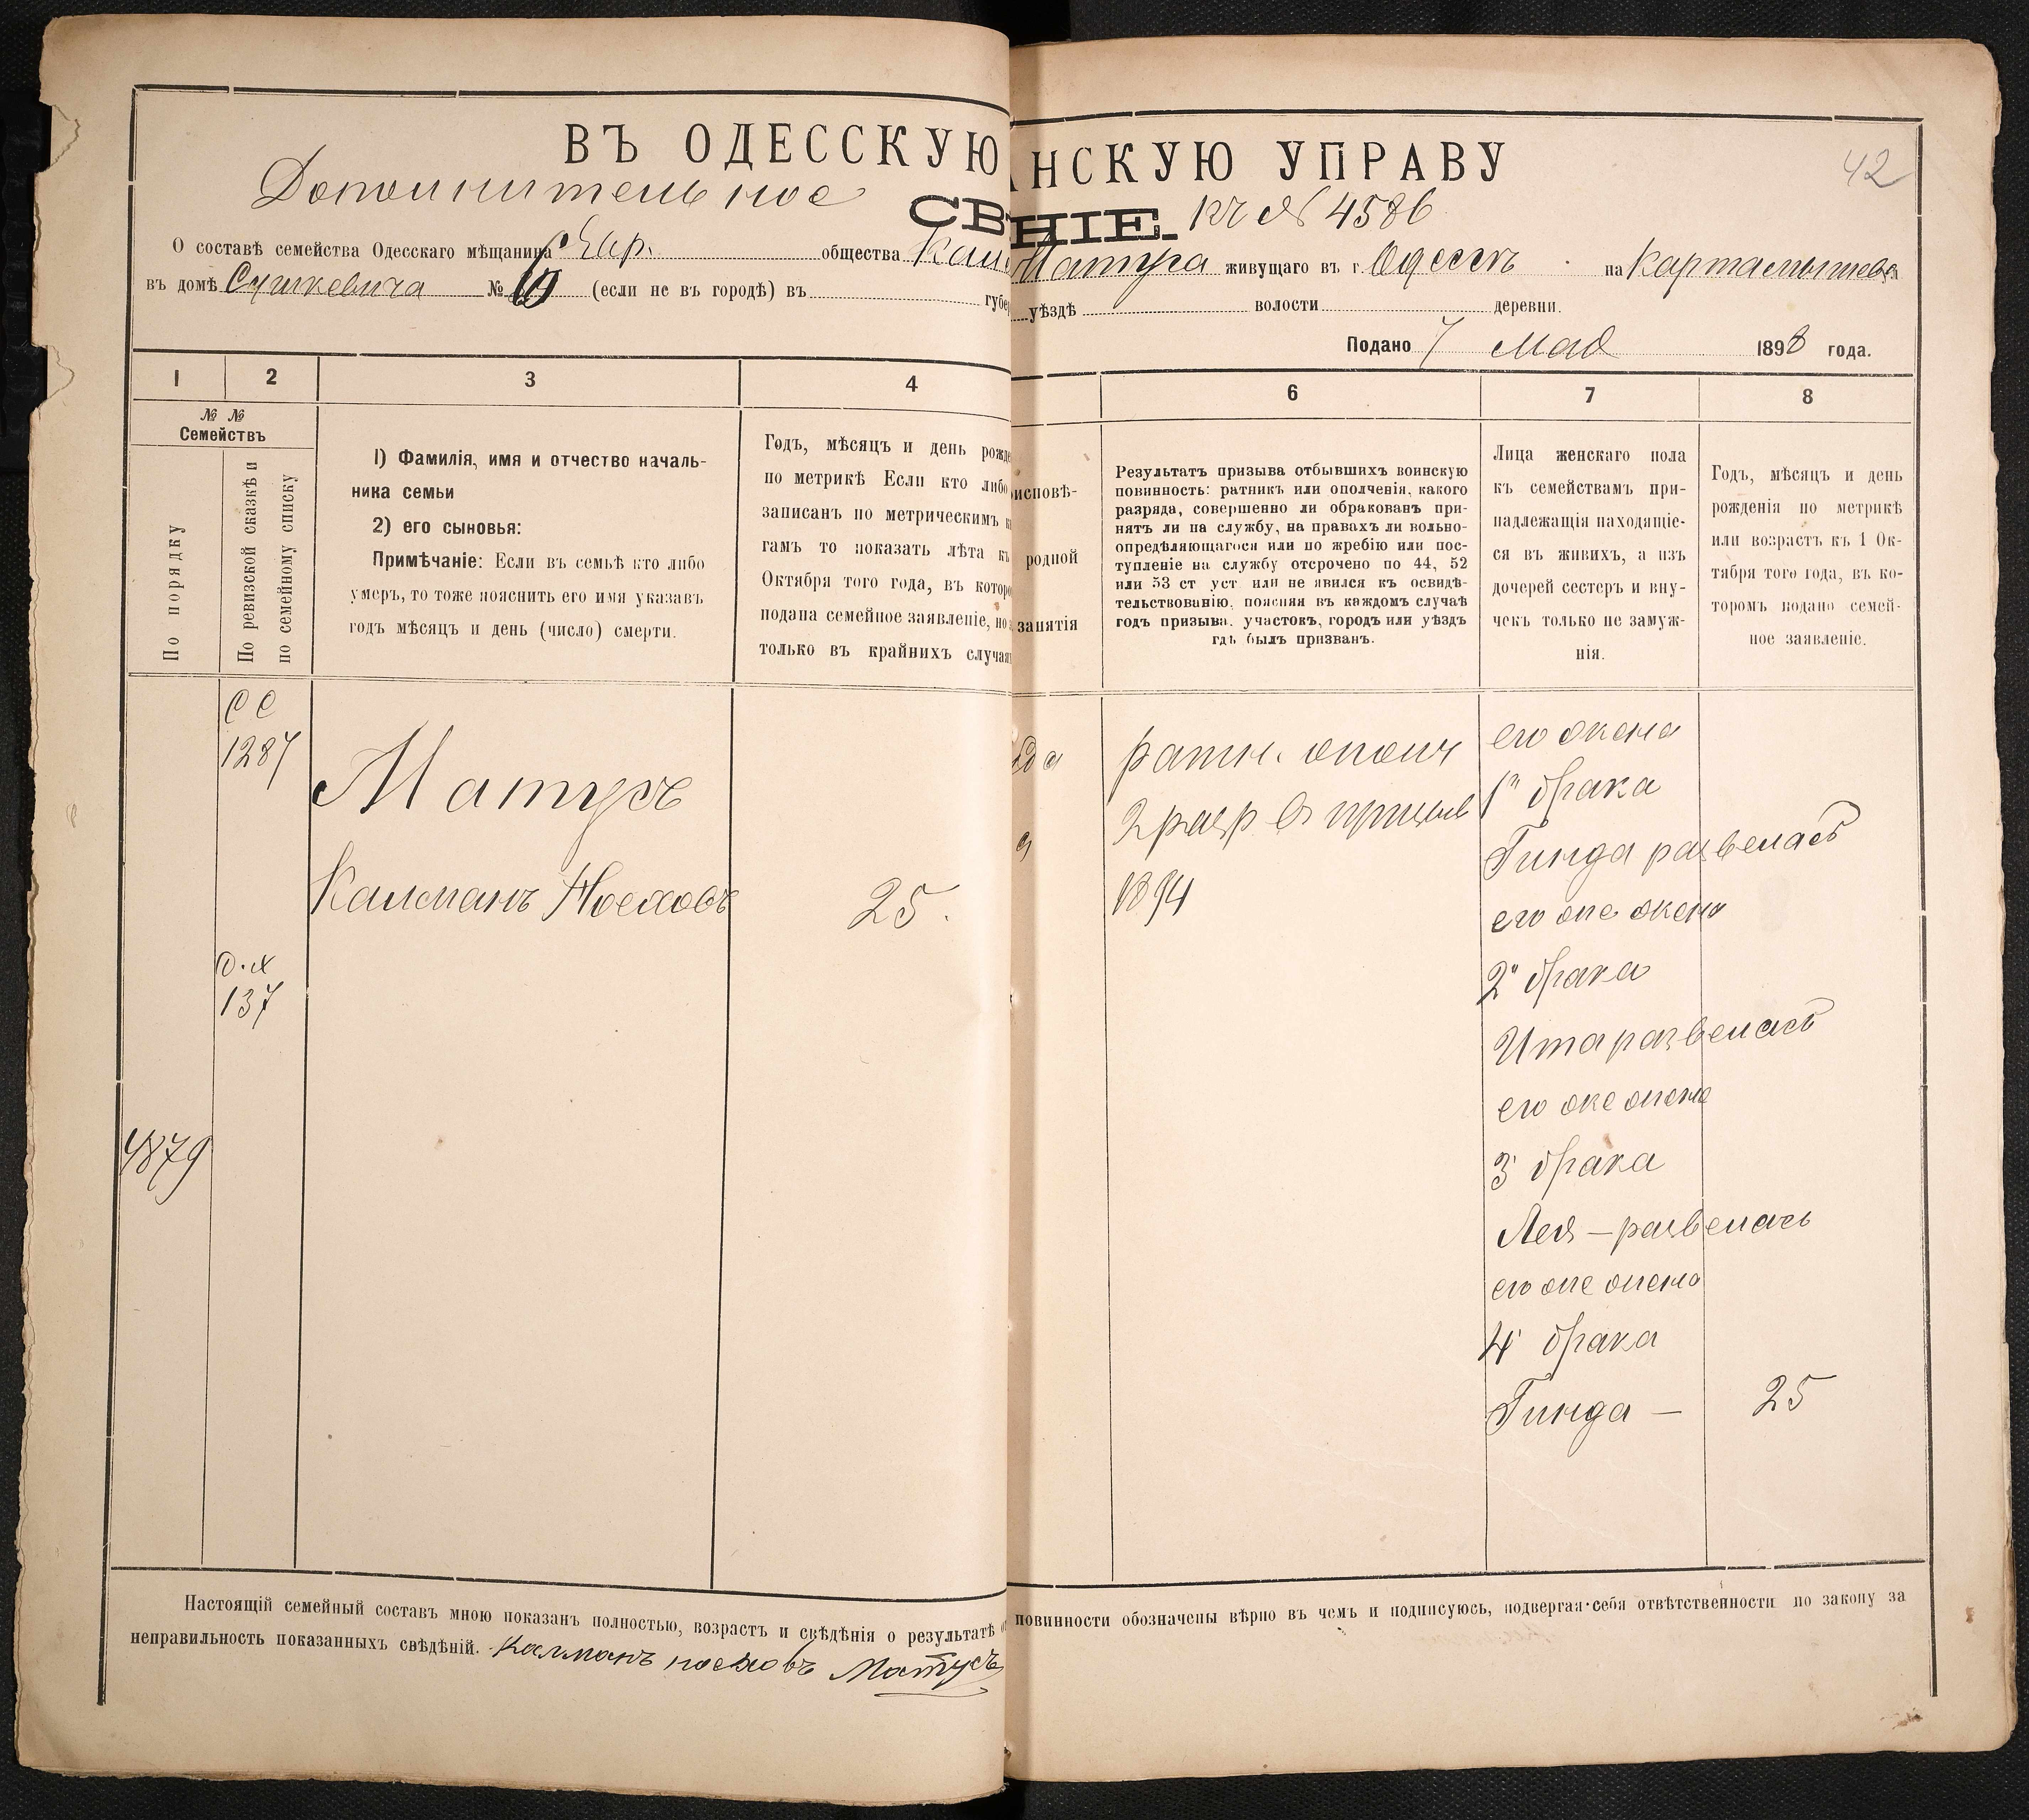 ВЪ ОДЕССКУЮ
НСКУЮ УПРАВУ
42
Дополнительное
СВ
НІЕ. къ № 4586
О составѣ семейства Одесскаго мѣщанина Евр. общества Калм
Матуса живущаго въ г. Одессѣ на Картамышевск
въ домѣ № (если не въ городѣ) въ губер
уѣздѣ волости деревни.
Подано 7 Мая 1898 года.
1 2 3 4
6 7 8
№ № Семействъ
По порядку
По ревизской сказкѣ и по семейному списку
1) Фамилія, имя и отчество началь-
ника семьи
2) его сыновья:
Примѣчаніе: Если въ семьѣ кто либо
умеръ, то тоже пояснить его имя указавъ
годъ мѣсяцъ и день (число) смерти.
Годъ, мѣсяцъ и день рожде
по метрикѣ Если кто либо
записанъ по метрическимъ к
гамъ то показать лѣта къ
Октября того года, въ которо
подана семейное заявленіе, но
только въ крайнихъ случая
исповѣ-
родной
занятія
Результатъ призыва отбывшихъ воинскую
повинность: ратникъ или ополченія, какого
разряда, совершенно ли обракованъ при-
нятъ ли на службу, на правахъ ли вольно-
опредѣляющагося или по жребію или пос-
тупленіе на службу отсрочено по 44, 52
или 53 ст уст или не явился къ освидѣ-
тельствованію, поясняя въ каждомъ случаѣ
годъ призыва, участокъ, городъ или уѣздъ
гдѣ былъ призванъ.
Лица женскаго пола
къ семействамъ при-
надлежащія находящіе-
ся въ живихъ, а изъ
дочерей сестеръ и вну-
чекъ только не замуж-
нія.
Годъ, мѣсяцъ и день
рожденія по метрикѣ
или возрастъ къ 1 Ок-
тября того года, въ ко-
торомъ подано семей-
ное заявленіе.
СС
1287
Матусъ
Калманъ Носховъ
25.
137
4879
ратн. ополч
2 разр въ призыв
1894
его жена
1го брака
Гинда развелась
его же жена
2го брака
Ита развелась
его же жена
3 брака
Лея – развелась
его же жена
4 брака
Гинда – 25
Настоящій семейный составъ мною показанъ полностью, возрастъ и свѣдѣнія о результатѣ
повинности обозначены вѣрно въ чемъ и подписуюсь, подвергая себя отвѣтственности по закону за
неправильность показанныхъ свѣдѣній. Калманъ носховъ Матусъ